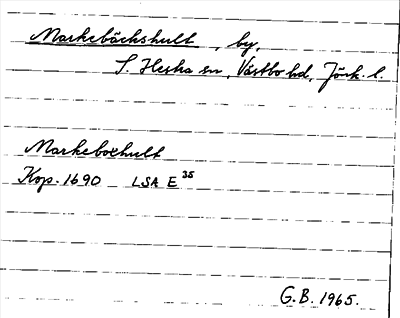 Markebäckshult, by,
S. Hestra sn, Västbo hd, Jönk. l.
Markebohult
Kop. 1690 LSA E 35
G.B. 1965.